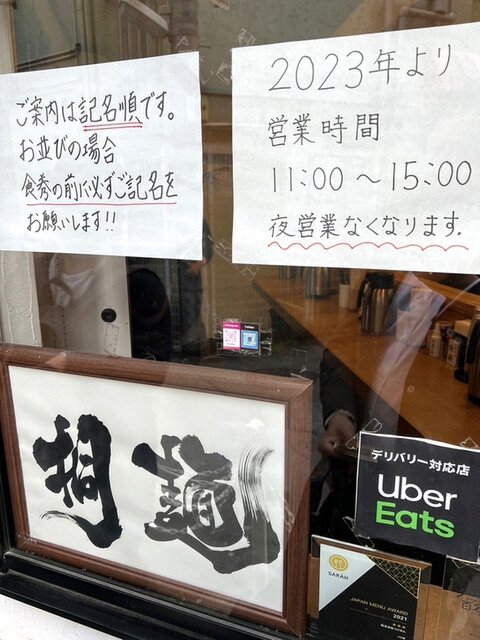 ご案内は記名順です。
お並びの場合
食券の前に必ずご記名を
お願いします!!
2023年より
営業時間
11:00〜15:00
夜営業なくなります.
Instagram
Twitter
桐麺
デリバリー対応店
Uber
Eats
SARAH
JAPAN MENU AWARD
2021
★★★